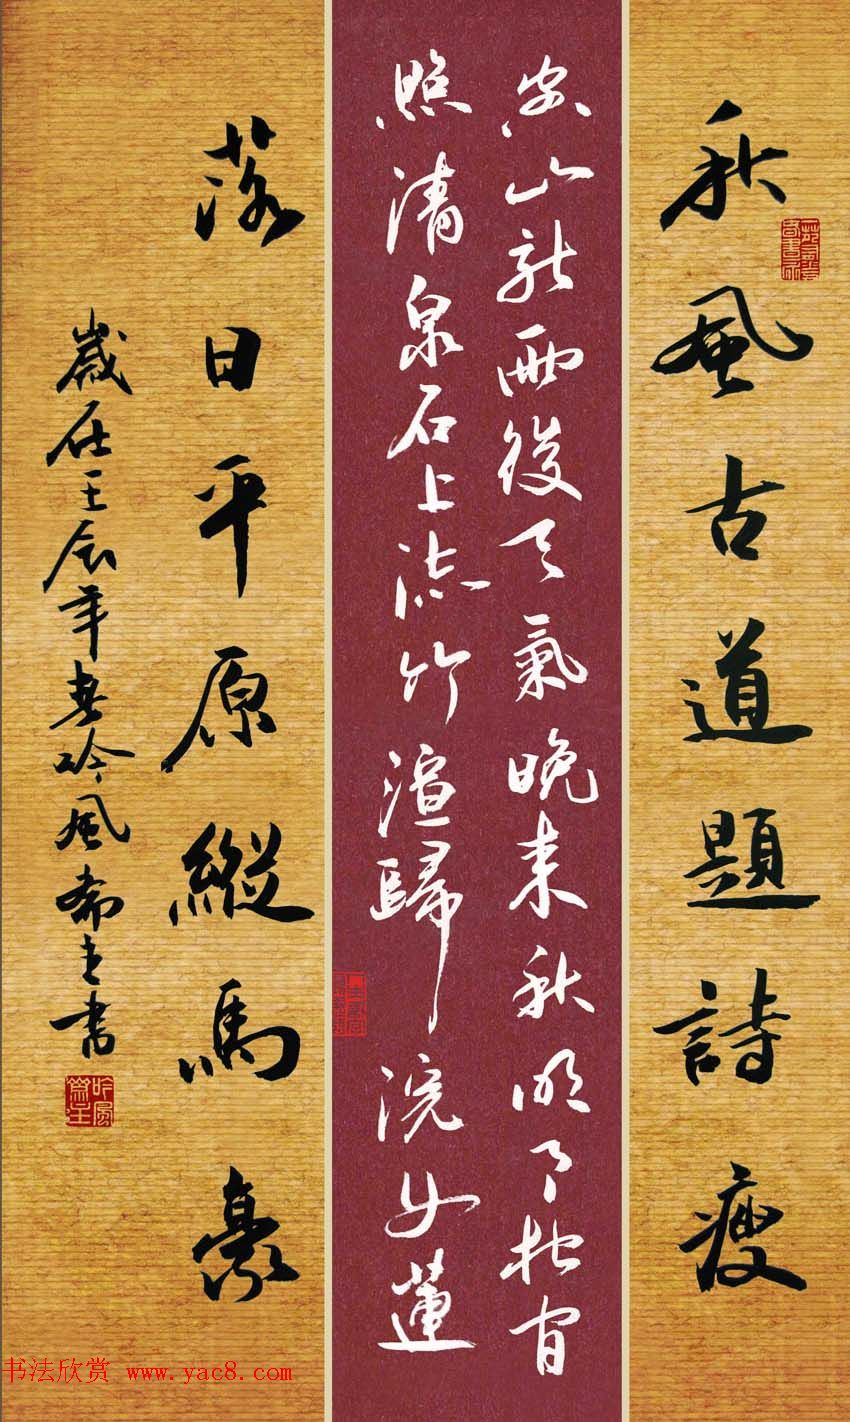 秋風古道題詩瘦
空山新雨後天氣晚来秋明月松間
照清泉石上流竹渲歸浣女蓮
落日平原縱馬豪
歲在壬辰年春吟風斋主書
吟風斋主
书法欣赏 www.yac8.com